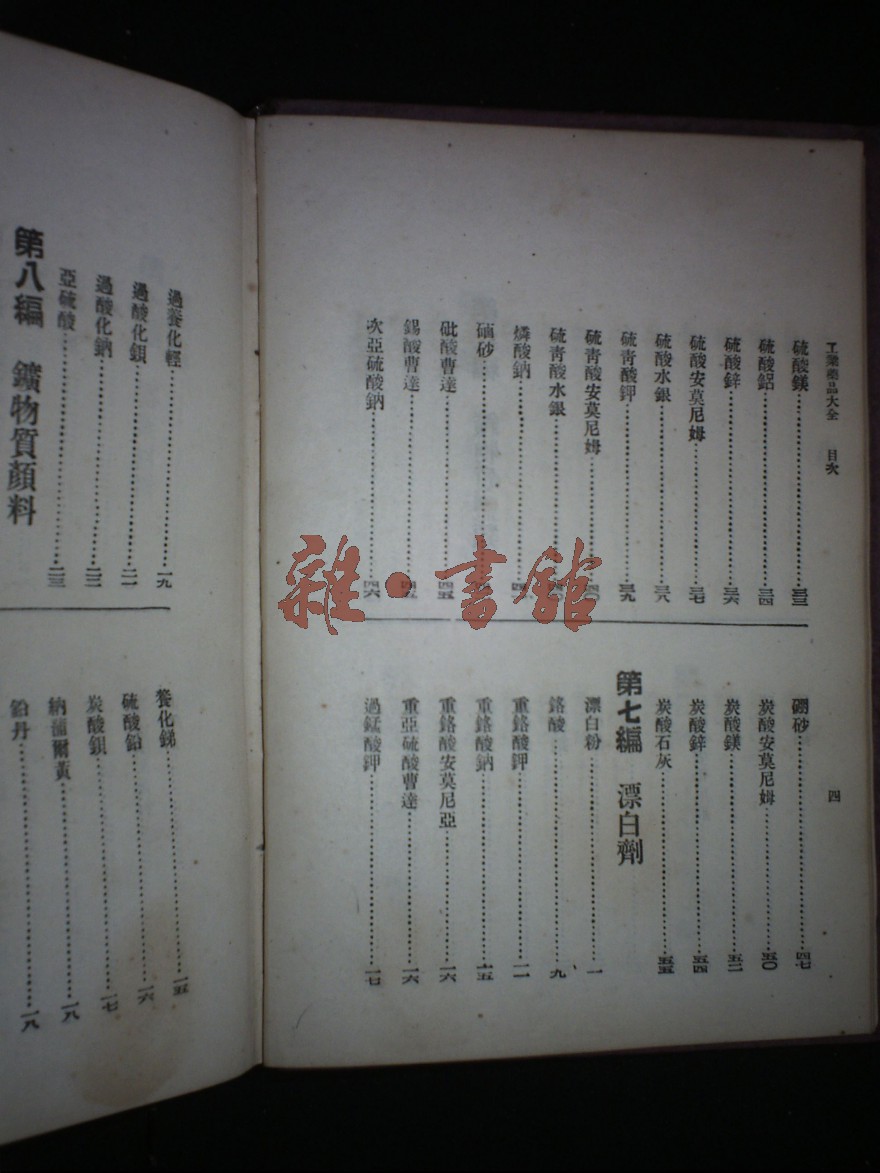 工業藥品大全 目次 四
硫酸鎂 三三
硫酸鋁 三四
硫酸鋅 三六
硫酸安莫尼姆 三七
硫酸水銀 三八
硫青酸鉀 三九
硫青酸安莫尼姆
硫青酸水銀
燐酸鈉
硇砂
砒酸曹達 四五
錫酸曹達 四五
次亞硫酸鈉 四六
硼砂 四七
炭酸安莫尼姆 五〇
炭酸鎂 五二
炭酸鋅 五四
炭酸石灰 五五
第七編 漂白劑
漂白粉 一
鉻酸 九
重鉻酸鉀 一一
重鉻酸鈉 一五
重鉻酸安莫尼亞 一六
重亞硫酸曹達 一六
過錳酸鉀 一七
過養化輕 一九
過酸化鋇 二一
過酸化鈉 二二
亞硫酸 二三
第八編 鑛物質顏料
養化銻 一五
硫酸鉛 一六
炭酸鋇 一七
納蒲爾黃 一八
鉛丹 一八
雜·書館